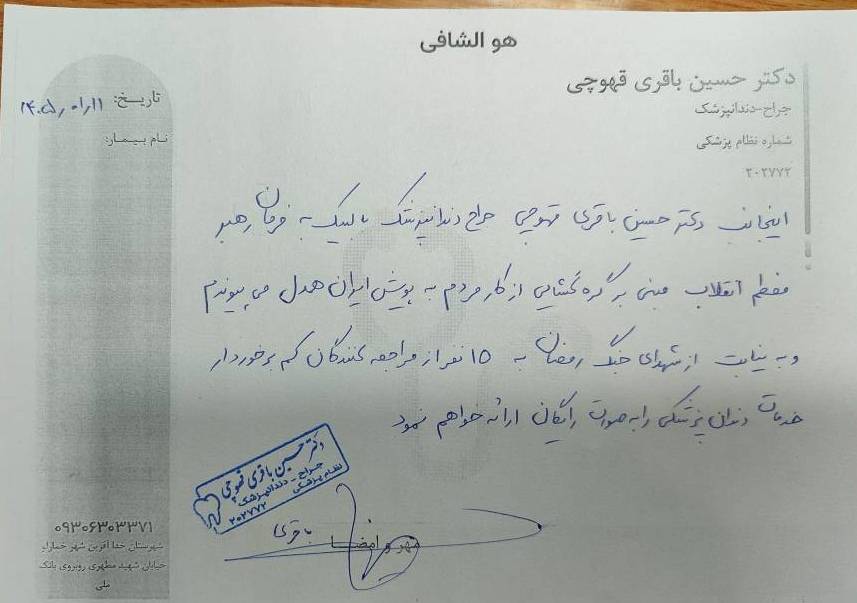 هو الشافی
دکتر حسین باقری قهوچی
جراح-دندانپزشک
شماره نظام پزشکی
۲۰۲۷۷۲
تاریخ: ۱۴۰۵/۰۱/۱۱
نام بیمار:
اینجانب دکتر حسین باقری قهوچی جراح دندانپزشک با لبیک به فرمان رهبر
معظم انقلاب مبنی بر گره گشایی از کار مردم به پویش ایران همدل می پیوندم
و به نیابت از شهدای جنگ رمضان به ۱۵ نفر از مراجعه کنندگان کم برخوردار
خدمات دندان پزشکی را به صورت رایگان ارائه خواهم نمود
دکتر حسین باقری قهوچی
جراح - دندانپزشک
نظام پزشکی
۲۰۲۷۷۲
باقری
مهر و امضا
۰۹۳۰۶۳۰۳۳۷۱
شهرستان خدا آفرین شهر خمارلو
خیابان شهید مطهری روبروی بانک
ملی